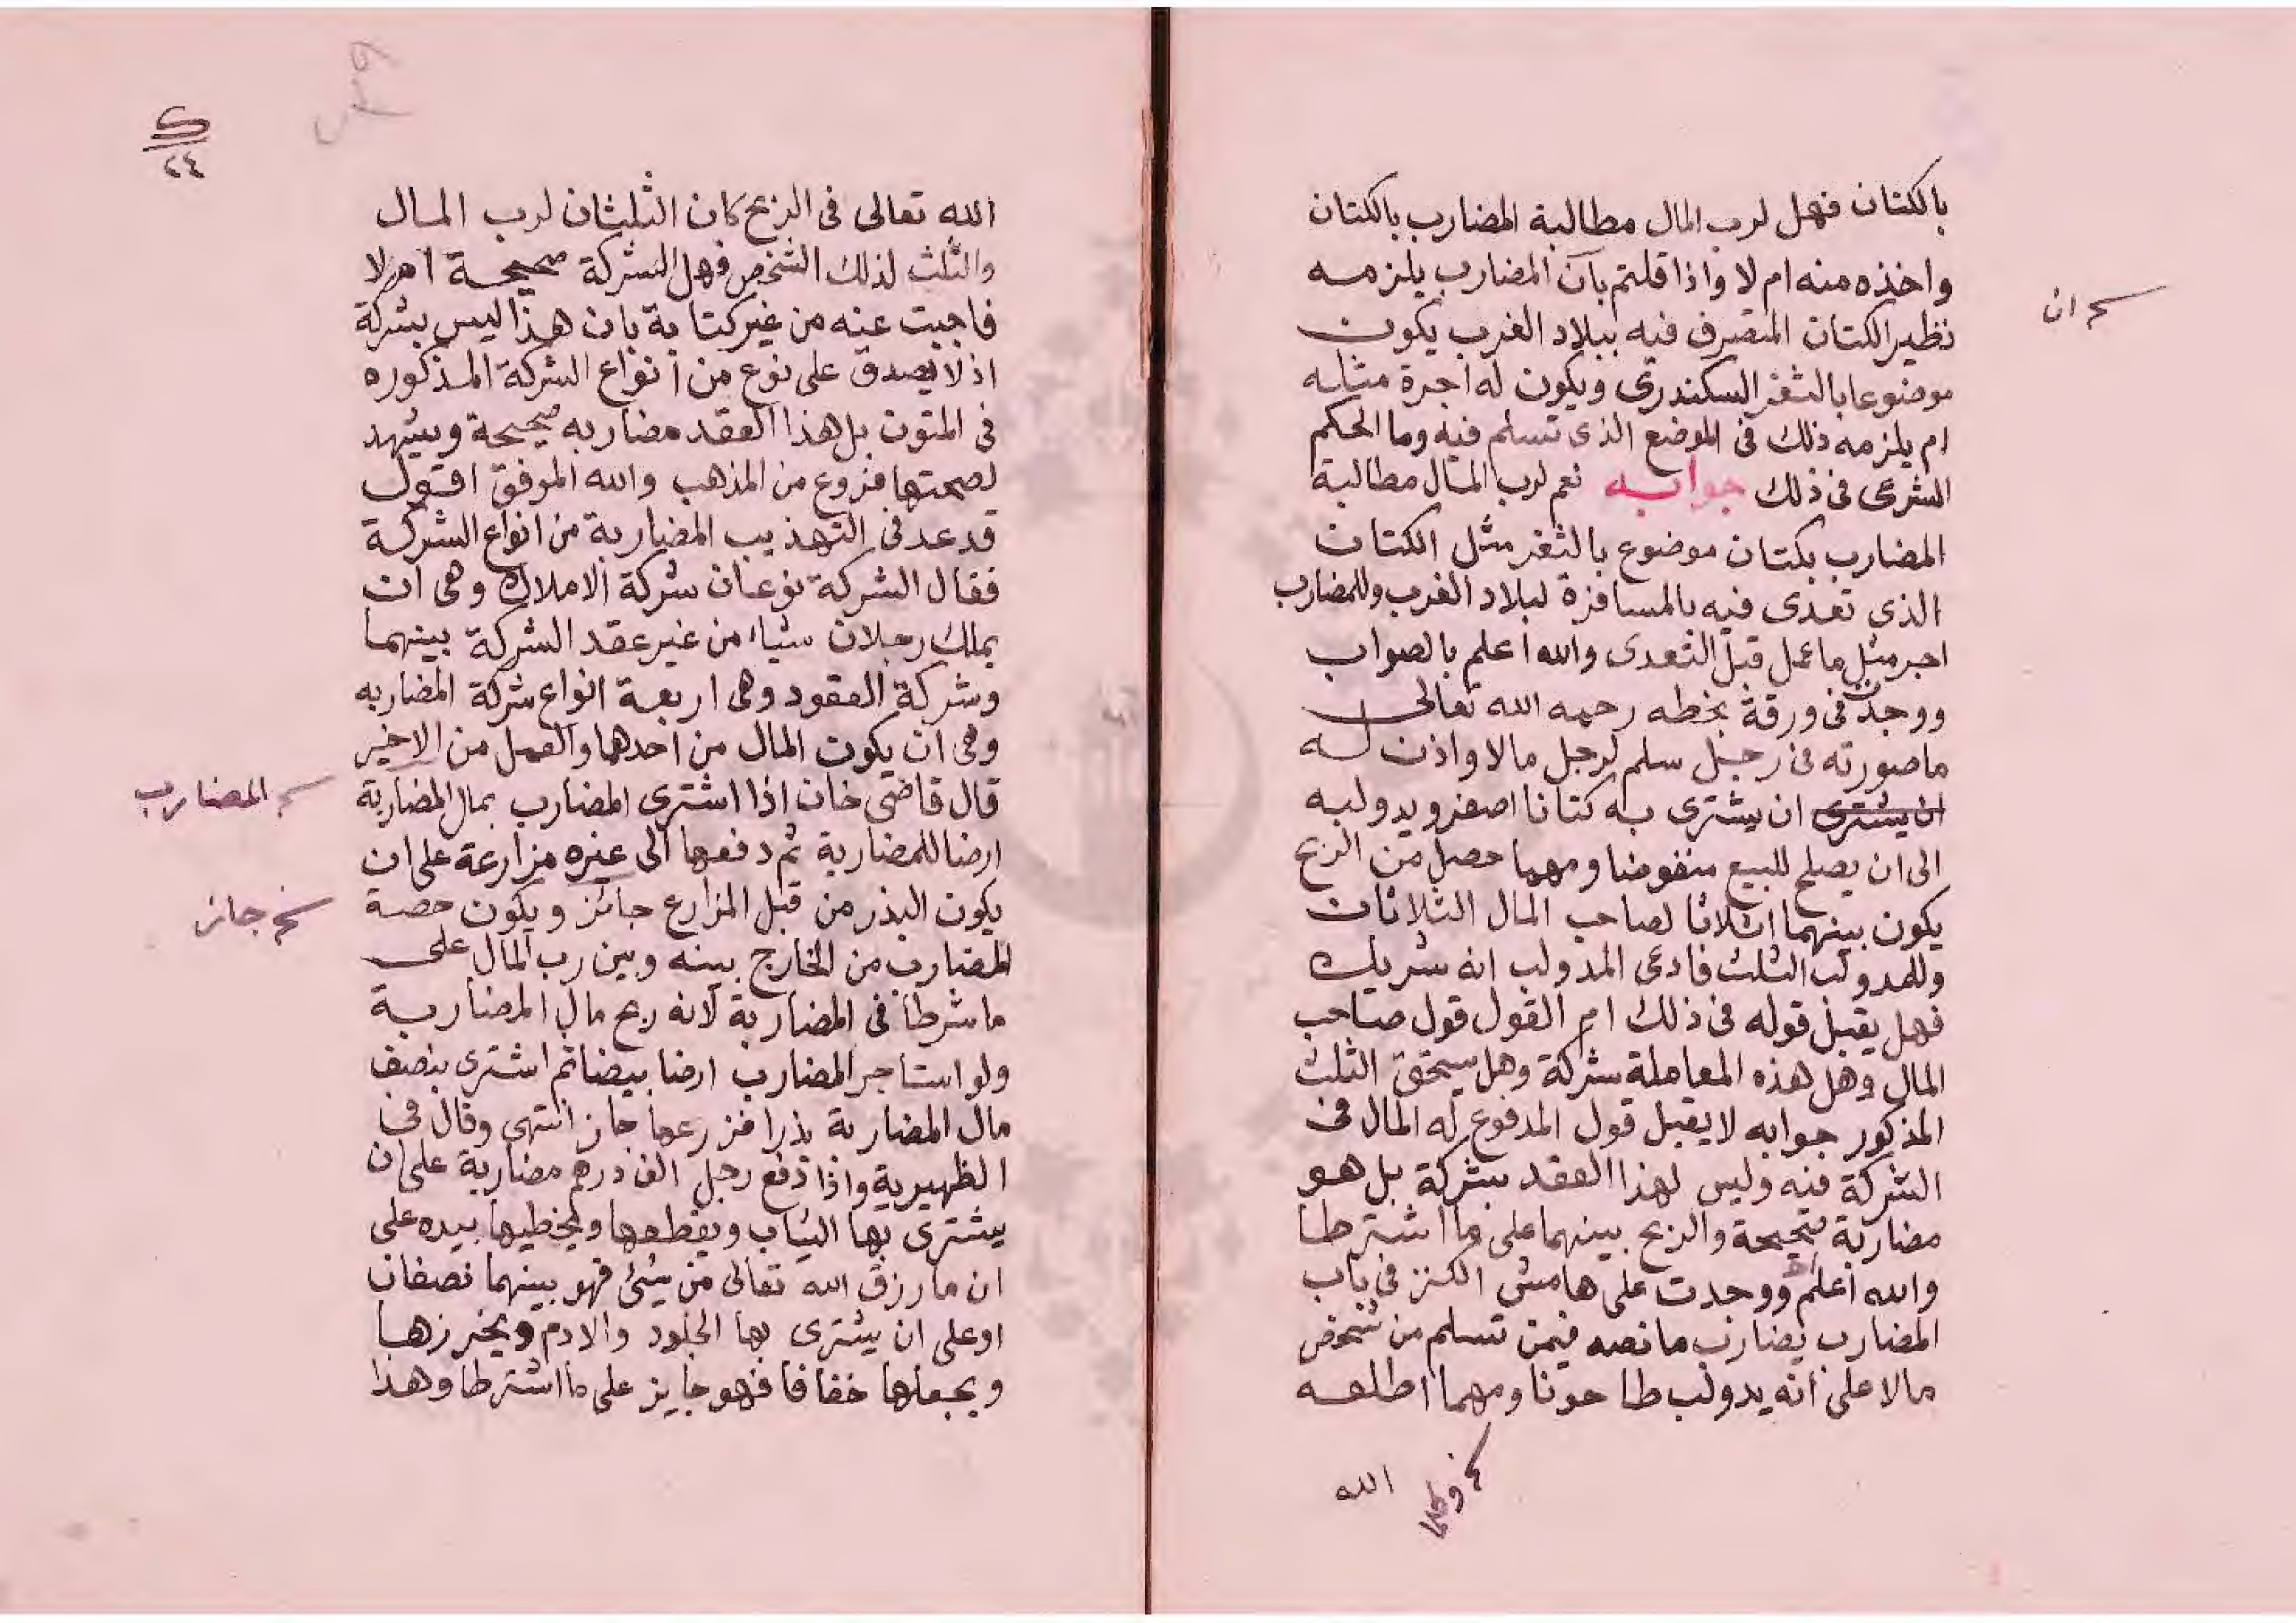 بالكتان فهل لرب المال مطالبة المضارب بالكتان
واخذه منه ام لا واذا قلتم بان المضارب يلزمه
نظير الكتان المتصرف فيه ببلاد الغرب يكون
موضوعا بالثغر السكندرى ويكون له اجرة مثله
ام يلزمه ذلك فى الموضع الذى تسلم فيه وما الحكم
الشرعى فى ذلك جوابه نعم لرب المال مطالبة
المضارب بكتان موضوع بالثغر مثل الكتان
الذي تعدى فيه بالمسافرة لبلاد الغرب وللمضارب
اجر مثل ما عمل قبل التعدى والله اعلم بالصواب
ووجدت فى ورقة بخطه رحمه الله تعالى
ما صورته فى رجل سلم لرجل مالا واذن له
ان يشترى ان يشترى به كتانا اصفر ويدولبه
الى ان يصلح للبيع منفوضا ومهما حصل من الربح
يكون بينهما اثلاثا لصاحب المال الثلاثان
وللمدولب الثلث فادعى المدولب انه شريك
فهل يقبل قوله فى ذلك ام القول قول صاحب
المال وهل هذه المعاملة شركة وهل يستحق الثلث
المذكور جوابه لا يقبل قول المدفوع له المال فى
الشركة فيه وليس لهذا العقد بشركة بل هو
مضاربة صحيحة والربح بينهما على ما اشترطا
والله اعلم ووجدت على هامش الكنز فى باب
المضارب يضارب ما نصه فيمن تسلم من شخص
مالا على انه يدولب طاحونا ومهما اطلعه
الله
ان
٢٤
الله تعالى فى الربح كان الثلثان لرب المال
والثلث لذلك الشخص فهل الشركة صحيحة ام لا
فاجبت عنه من غير كتابة بان هذا ليس بشركة
اذ لا يصدق على نوع من انواع الشركة المذكوره
فى المتون بل هذا العقد مضاربه صحيحة ويشهد
لصحتها فروع من المذهب والله الموفق اقول
قد عد فى التهذيب المضاربة من انواع الشركة
فقال الشركة نوعان شركة الاملاك وهى ان
يملك رجلان شياء من غير عقد الشركة بينهما
وشركة العقود وهى اربعة انواع شركة المضاربه
وهى ان يكون المال من احدهما والعمل من الاخير
قال قاضى خان اذا اشترى المضارب بمال المضاربة
ارضا للمضاربة ثم دفعها الى غيره مزارعة على ان
يكون البذر من قبل المزارع جائز ويكون حصة
المضارب من الخارج بينه وبين رب المال على
ما شرطا فى المضاربة لانه ربح مال المضاربة
ولو استاجر المضارب ارضا بيضا ثم اشترى بنصف
مال المضاربة بذرا فزرعها جاز انتهى وقال فى
الظهيرية واذا دفع رجل الف درهم مضاربة على ان
يشترى بها الثياب ويقطعها ويخيطها بيده على
ان ما رزق الله تعالى من شئ فهو بينهما نصفان
او على ان يشترى بها الجلود والادم ويخرزها
ويجعلها خفافا فهو جايز على ما اشترطا وهذا
المضارب
جاز